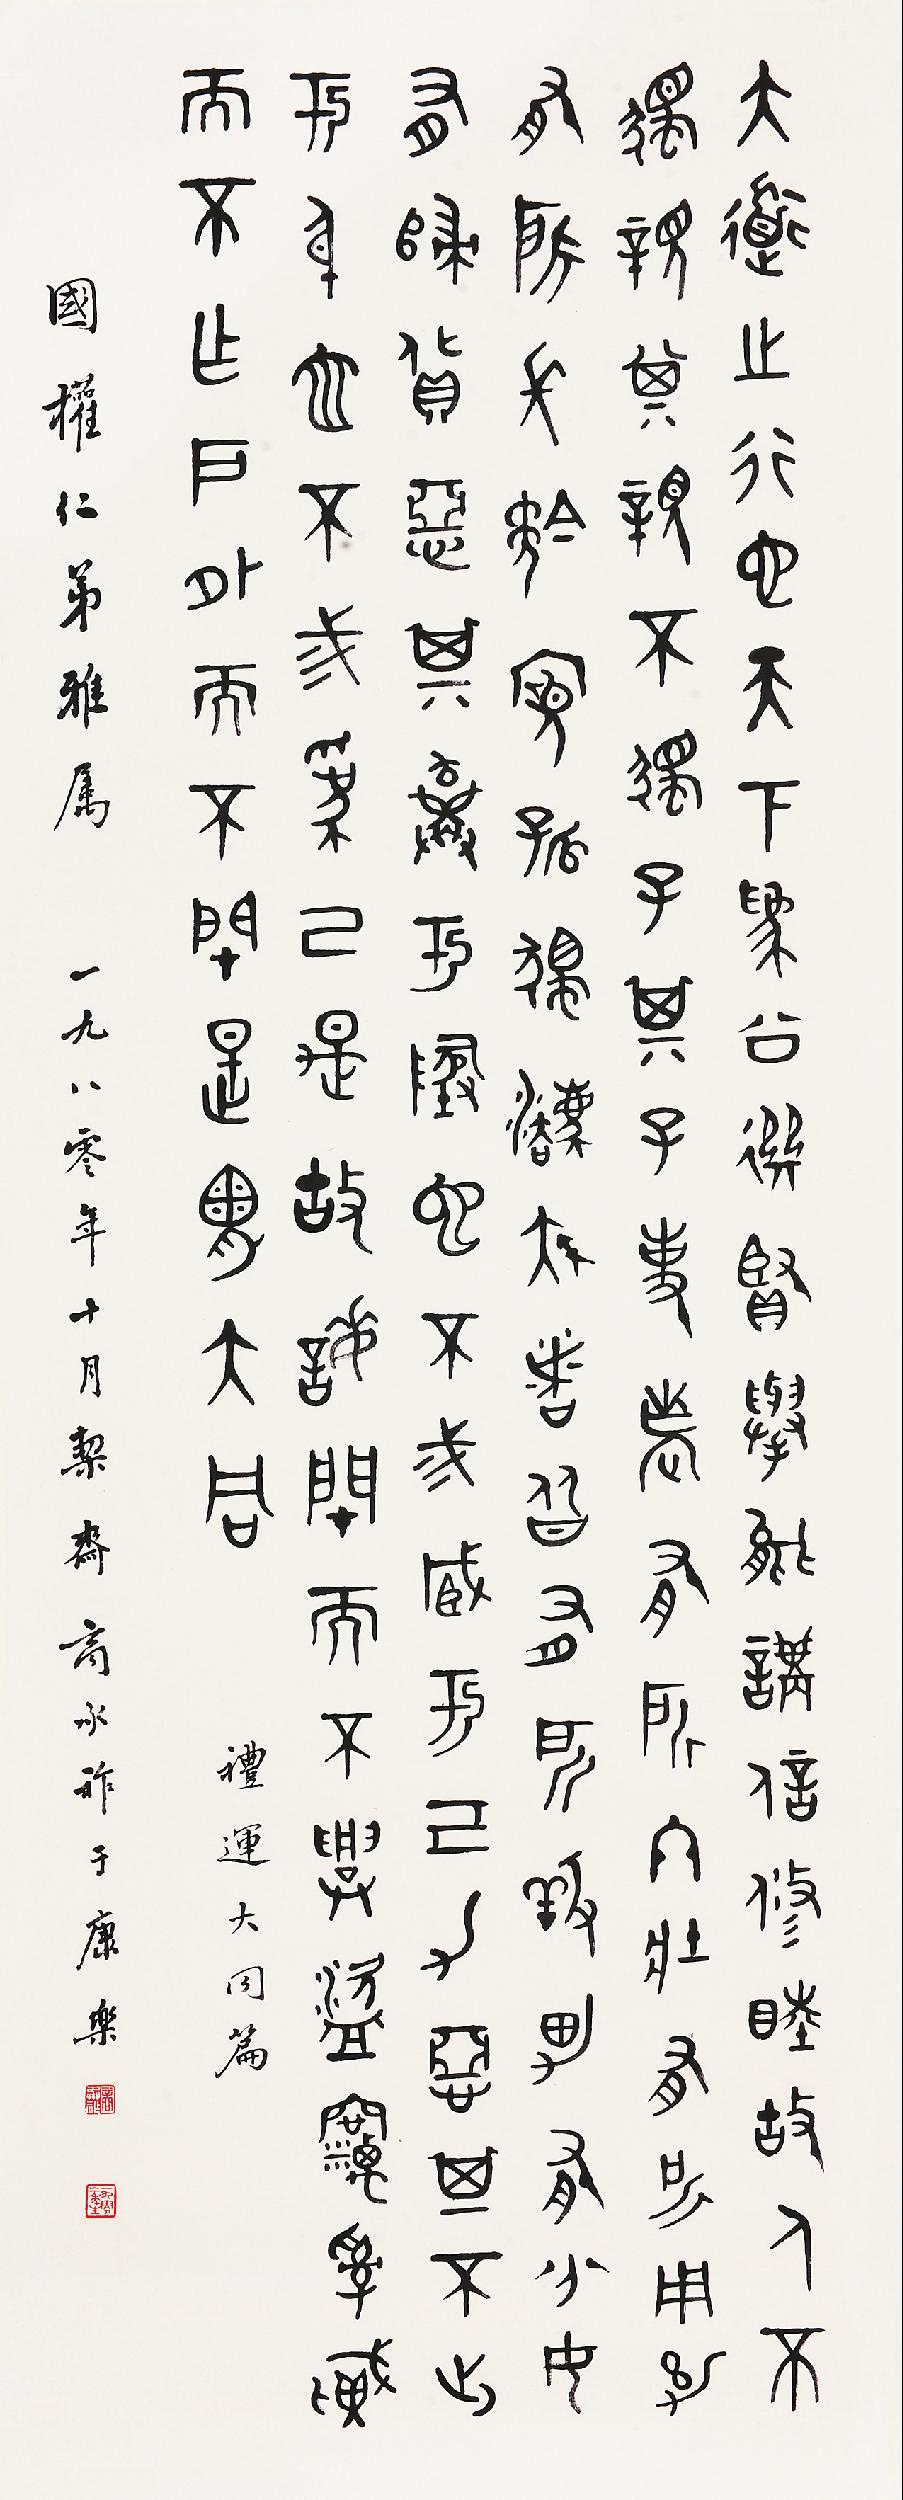 大道之行也天下為公選賢舉能講信修睦故人不
獨親其親不獨子其子使老有所終壯有所用幼
有所長矜寡孤獨廢疾者皆有所養男有分女
有歸貨惡其棄於地也不必藏於己力惡其不出
於身也不必為己是故謀閉而不興盜竊亂賊
而不作戶外而不閉是謂大同
禮運大同篇
國權仁弟雅属 一九八零年十月契齋商承祚于康樂